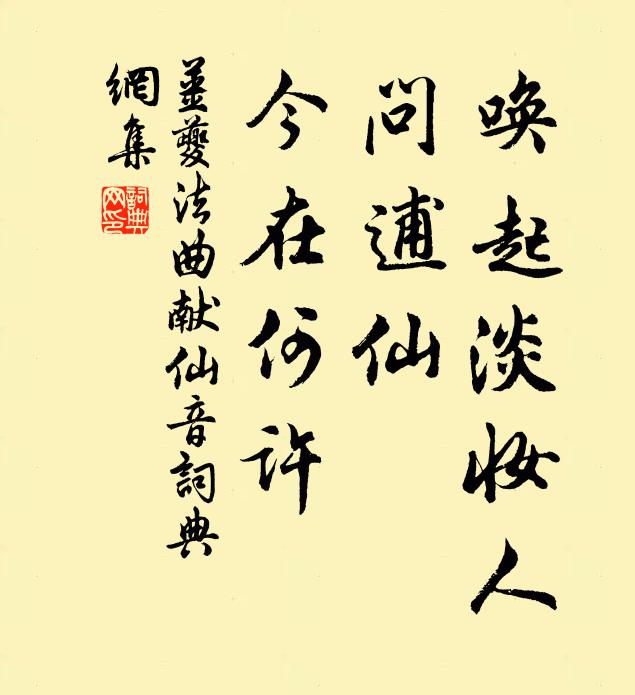 唤起淡妆人
问逋仙
今在何许
姜夔法曲献仙音詞典
網集
詞典
网印